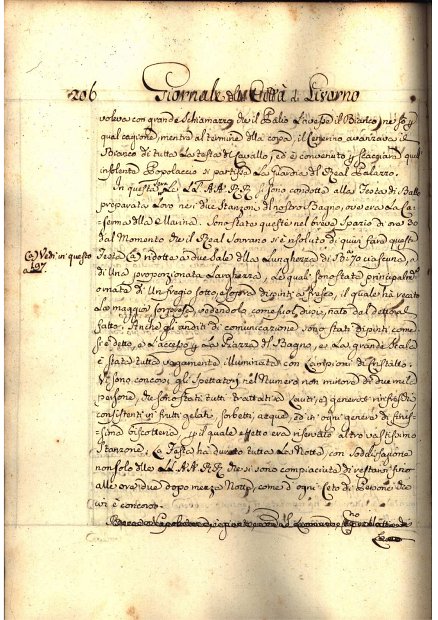 206 Giornale della Città di Livorno
voleva con grande schiamazzo che il Palio avesse il Bianco, ne so
qual cagione, mentre al termine della copia, il Cenerino avanzava il
Bianco di tutta la testa di Cavallo, ed è convenuto scacciare quell
insolente Popolaccio si partisse la Guardia del Real Palazzo.
In questa sera Le LL. AA. RR. si sono condotte alla Festa di Ballo
preparata Loro nei due Stanzoni del nostro Bagno, ove era la Ca-
serma della Marina. Sono state queste nel breve spazio di ore
dal Momento che il Real Sovrano si è risoluto di quivi fare questa
(a) Vedi in questo
a 197
Festa (a) ridotte a due Sale della Lunghezza di Bi 70 ciascuna, e
di una proporzionata Larghezza, le quali sono state principalmte
ornate di un fregio sotto, e sopra dipinti a fresco, il quale ha recato
la maggior sorpresa, vedendolo come fosse
fatto. Anche gli anditi di comunicazione sono stati dipinti come
si è detto, e l'accesso, e la Piazza del Bagno, e la grande Scala
è stata tutta vagamente illuminata con Lampioni di Cristallo.
Vi sono concorsi gli Spettatori nel Numero non minore di due mila
persone, che sono stati tutti trattati a Lauti, e generosi rinfreschi
consistenti in frutti gelati, sorbetti, acque, ed in ogni genere di finis-
sima biscotteria, per il quale effetto era riservato altro vastissimo
Stanzone. La Festa ha durato tutta La Notte, con sodisfazione
non solo delle LL. AA. RR. che si sono compiaciute di restarvi fino
alle ore due dopo mezza Notte, come d'ogni Ceto di Persone che
vi è concorso.